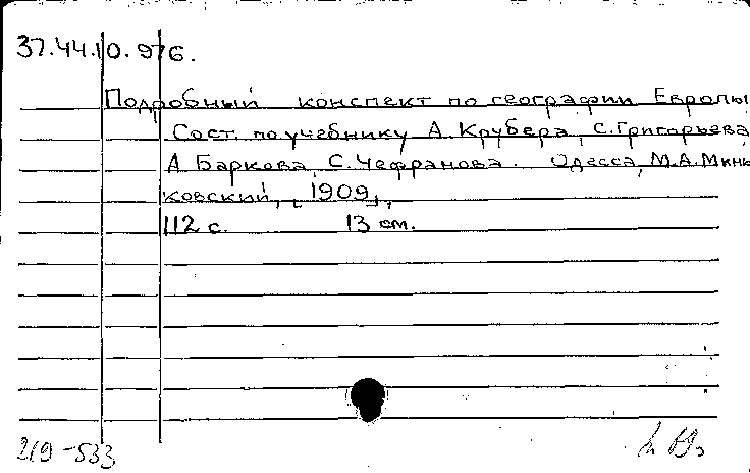 37.44.10.976.
Подробный конспект по географии Европы
Сост. по учебнику А. Крубера, С. Григорьева,
А. Баркова, С. Чефранова. Одесса, М.А. Минь
ковский, [1909],
112 с. 13 см.
219-533